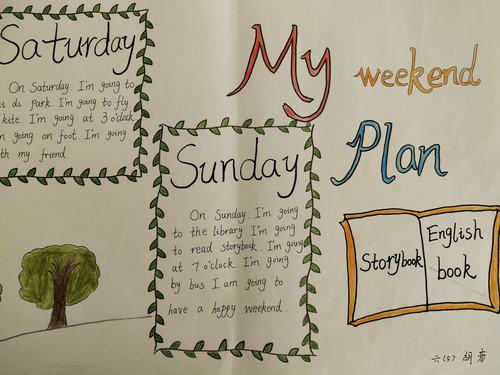 Saturday
On Saturday. I'm going to
park. I'm going to fly
kite. I'm going at 3 o'clock
going on foot. I'm going
my friend
My
weekend
Plan
Sunday
On Sunday. I'm going
to the library. I'm going
to read storybook. I'm going
at 7 o'clock. I'm going
by bus. I am going to
have a happy weekend.
Storybook
English
book
六(5) 胡